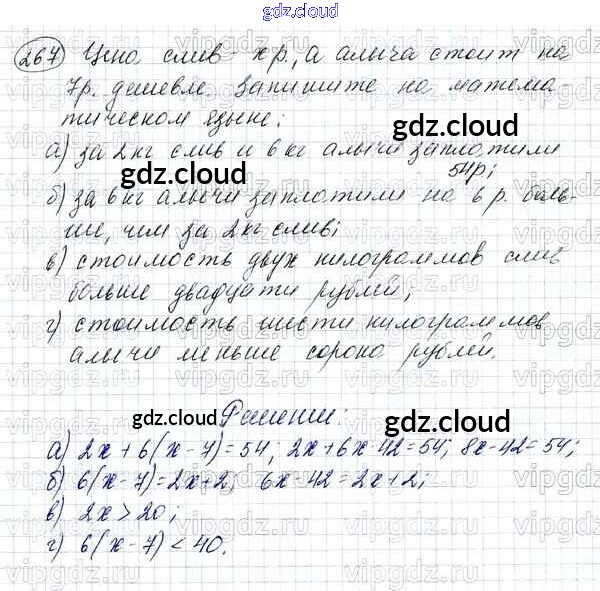 gdz.cloud
267) Цена слив - х р., а алыча стоит на
7р. дешевле. Запишите на матема
тическом языке:
а) за 2 кг слив и 6 кг алычи заплатили
54р;
б) за 6 кг алычи заплатили на 6 р. боль-
ше, чем за 2 кг слив;
в) стоимость двух килограммов слив
больше двадцати рублей;
г) стоимость шести килограммов
алычи меньше сорока рублей.
gdz.cloud
gdz.cloud
gdz.cloud
Решение:
gdz.cloud
gdz.cloud
а) 2х + 6(х - 7) = 54; 2х + 6х - 42 = 54; 8х - 42 = 54;
б) 6(х - 7) = 2х + 2; 6х - 42 = 2х + 2;
в) 2х > 20;
г) 6(х - 7) < 40.
gdz.cloud
gdz.cloud